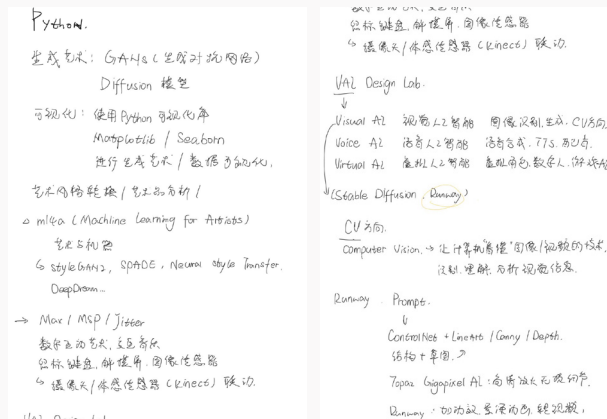 Python.
生成艺术: GANs (生成对抗网络)
Diffusion 模型
可视化: 使用Python可视化库
Matplotlib / Seaborn
进行生成艺术 / 数据可视化,
艺术风格转换 / 艺术品分析 /
ml4a (Machine Learning for Artists)
艺术与机器
↳ styleGAN2, SPADE, Neural style Transfer.
DeepDream...
→ Max / MSP / Jitter
数字互动艺术, 交互音乐
鼠标键盘, 触摸屏, 图像传感器
↳ 摄像头/体感传感器 (Kinect) 联动.
鼠标键盘, 触摸屏, 图像传感器
↳ 摄像头/体感传感器 (Kinect) 联动.
VAI Design Lab.
↓
Visual AI 视觉人工智能 图像识别, 生成, CV方向
Voice AI 语音人工智能 语音合成, TTS,
Virtual AI 虚拟人工智能 虚拟角色, 数字人, 游戏AI
(Stable Diffusion, Runway)
CV方向.
Computer Vision. → 让计算机"看懂"图像/视频的技术,
识别, 理解, 分析视觉信息.
Runway. Prompt.
↓
ControlNet + LineArt / Canny / Depth.
结构 + 草图 ↗
Topaz Gigapixel AI: 高清放大无损细节.
Runway: